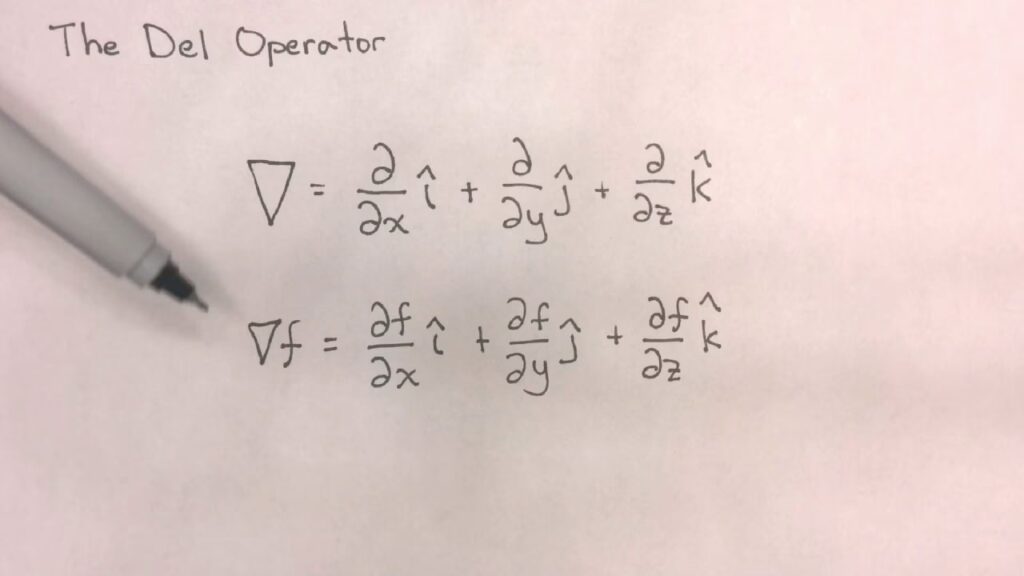 The Del Operator
∇ = ∂/∂x î + ∂/∂y ĵ + ∂/∂z k̂
∇f = ∂f/∂x î + ∂f/∂y ĵ + ∂f/∂z k̂